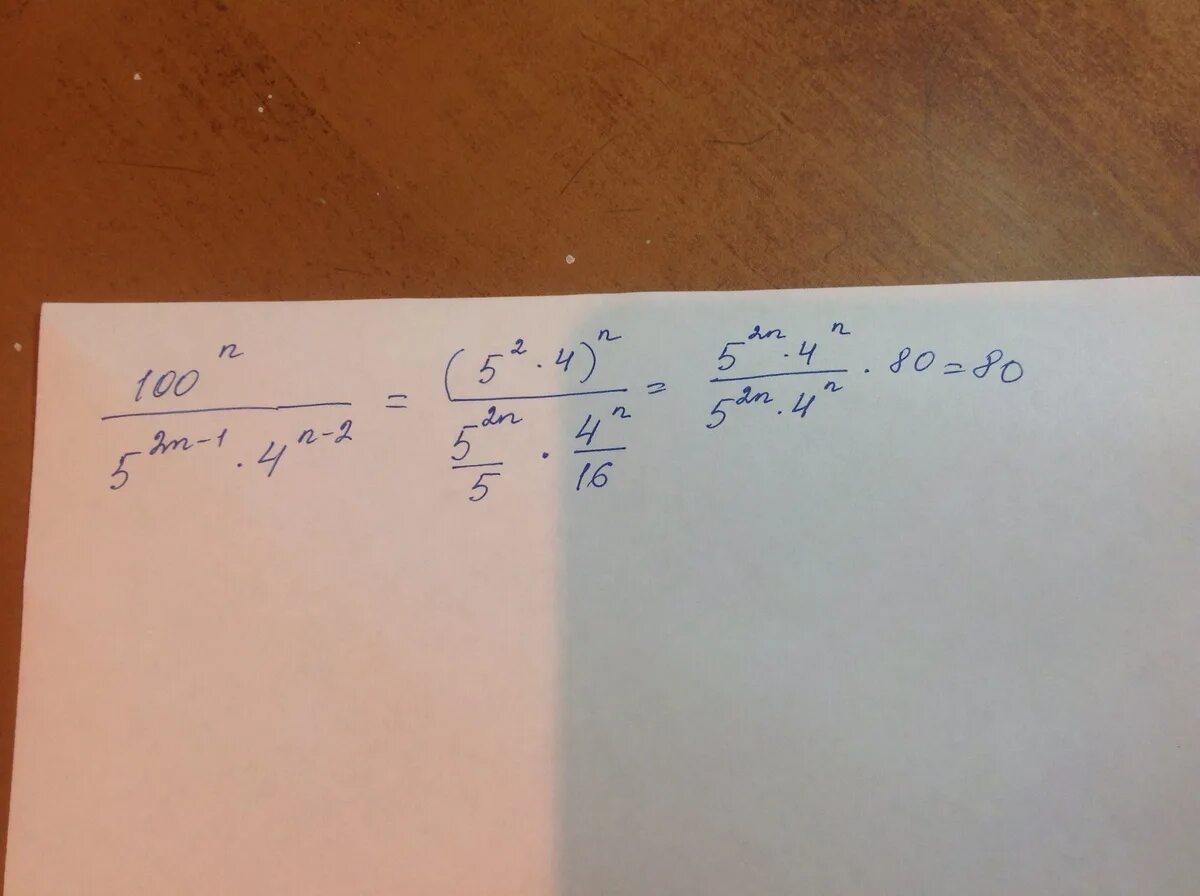 100^n / (5^(2n-1) · 4^(n-2)) = (5^2 · 4)^n / (5^(2n)/5 · 4^n/16) = (5^(2n) · 4^n) / (5^(2n) · 4^n) · 80 = 80